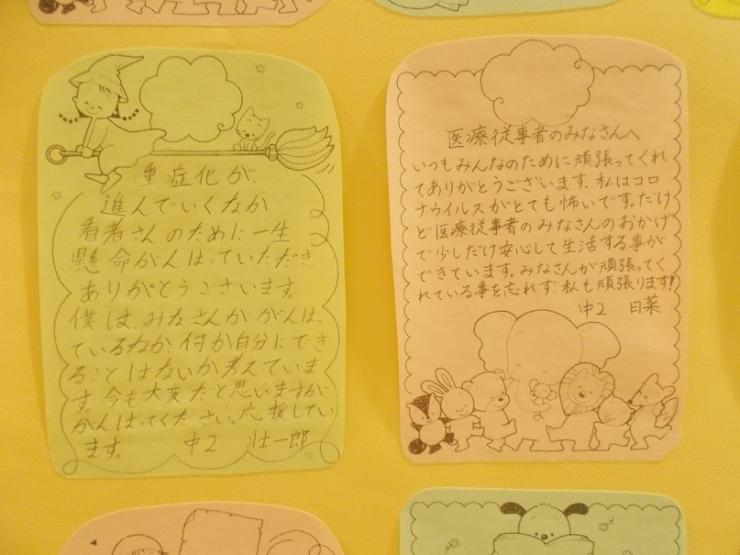 重症化が
進んでいくなか
看者さんのために一生
懸命がんばっていただき
ありがとうございます。
僕は、みなさんががんば
ているなか何か自分にでき
ることはないか考えていま
す。今も大変だと思いますが
がんばってください。応援してい
ます。 中2 壮一郎
医療従事者のみなさんへ
いつもみんなのために頑張ってくれ
てありがとうございます。私はコロ
ナウイルスがとても怖いです。だけ
ど医療従事者のみなさんのおかげ
で少しだけ安心して生活する事が
できています。みなさんが頑張ってく
れている事を忘れず、私も頑張ります!
中2 日菜